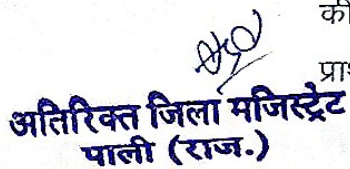 की
प्रा
अतिरिक्त जिला मजिस्ट्रेट
पाली (राज.)